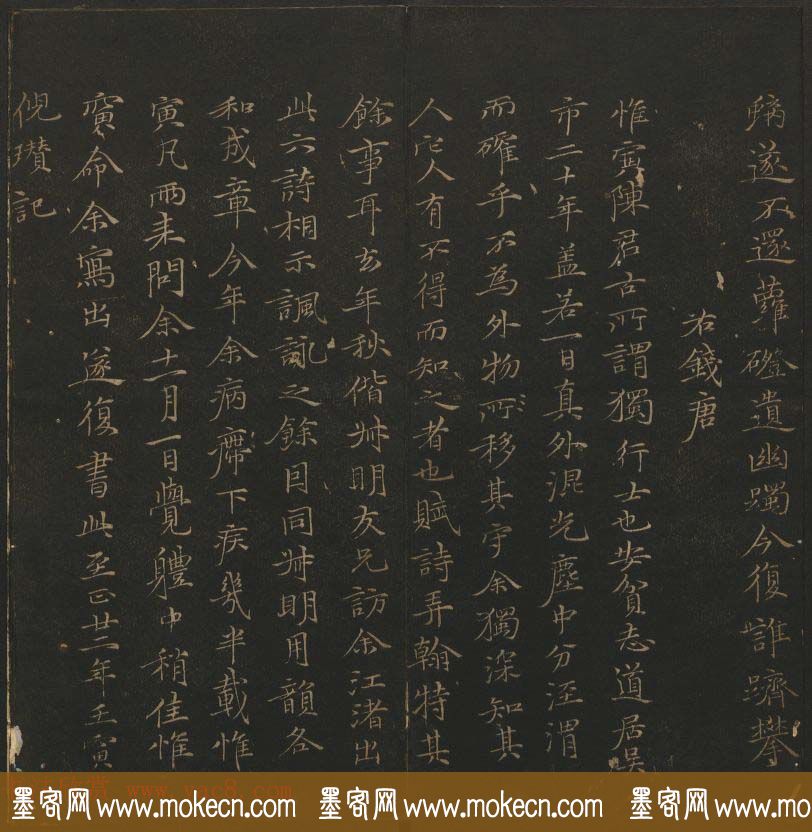 遂不還蘿磴遺幽躅今復誰躋攀
右錢唐
惟寅陳君古所謂獨行士也安貧志道居吳
市二十年蓋若一日真外混光塵中分涇渭
而確乎不為外物所移其守余獨深知其
人他人有不得而知之者也賦詩弄翰特其
餘事耳去年秋偕叔明友兄訪余江渚出
此六詩相示諷詠之餘因同叔明用韻各
和成章今年余病滯下疾幾半載惟
寅凡兩来問余十一月一日覺體中稍佳惟
寅命余寫出遂復書此至正廿二年壬寅
倪瓚記
www.yac8.com
墨客网 www.mokecn.com 墨客网 www.mokecn.com 墨客网 www.mokecn.com